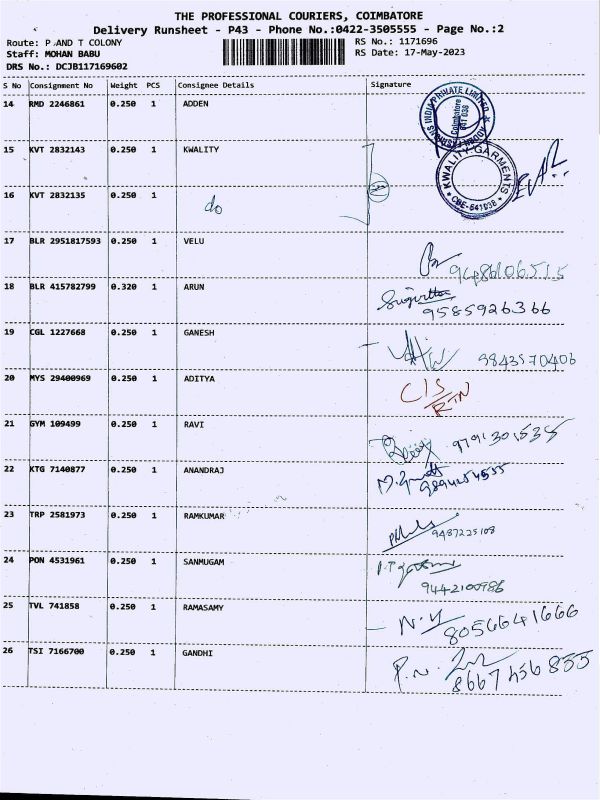 THE PROFESSIONAL COURIERS, COIMBATORE
Delivery Runsheet - P43 - Phone No.:0422-3505555 - Page No.:2
Route: P AND T COLONY RS No.: 1171696
Staff: MOHAN BABU RS Date: 17-May-2023
DRS No.: DCJB117169602
S No Consignment No Weight PCS Consignee Details Signature
14 RMD 2246861 0.250 1 ADDEN
15 KVT 2832143 0.250 1 KWALITY
KWALITY GARMENTS
CBE-641038
16 KVT 2832135 0.250 1 do
17 BLR 2951817593 0.250 1 VELU
9486106515
18 BLR 415782799 0.320 1 ARUN
9585926366
19 CGL 1227668 0.250 1 GANESH
9843570406
20 MYS 29400969 0.250 1 ADITYA
C/S
RTN
21 GYM 109499 0.250 1 RAVI
9791301535
22 KTG 7140877 0.250 1 ANANDRAJ
23 TRP 2581973 0.250 1 RAMKUMAR
9487225108
24 PON 4531961 0.250 1 SANMUGAM
9442100986
25 TVL 741858 0.250 1 RAMASAMY
8056641666
26 TSI 7166700 0.250 1 GANDHI
8667456855